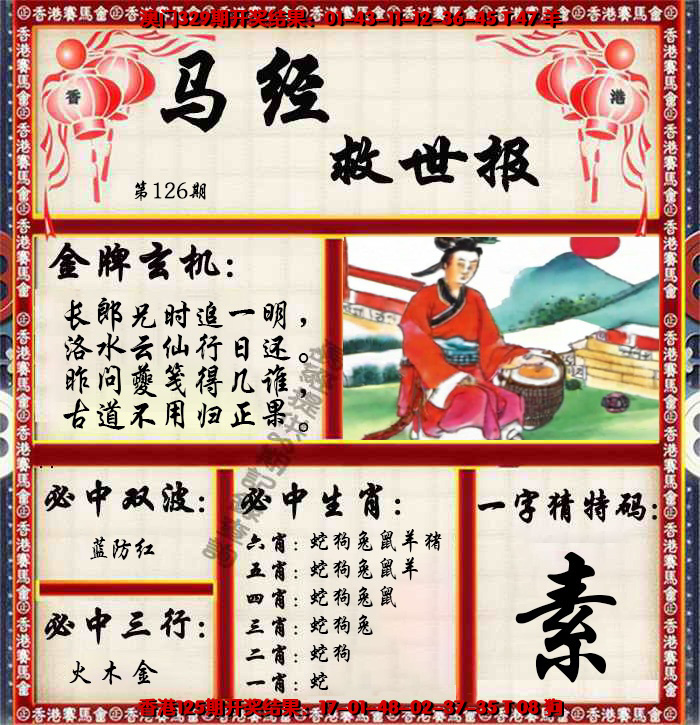 澳门329期开奖结果：01-43-11-12-36-45 T 47 羊
香港賽馬會
香
港
马经
救世报
第126期
金牌玄机：
长郎兄时追一明，
洛水云仙行日还。
昨问夔笺得几谁，
古道不用归正果。
必中双波：
蓝防红
必中三行：
火木金
必中生肖：
六肖：蛇狗兔鼠羊猪
五肖：蛇狗兔鼠羊
四肖：蛇狗兔鼠
三肖：蛇狗兔
二肖：蛇狗
一肖：蛇
一字猜特码：
素
香港125期开奖结果：17-01-48-02-37-35 T 08 狗